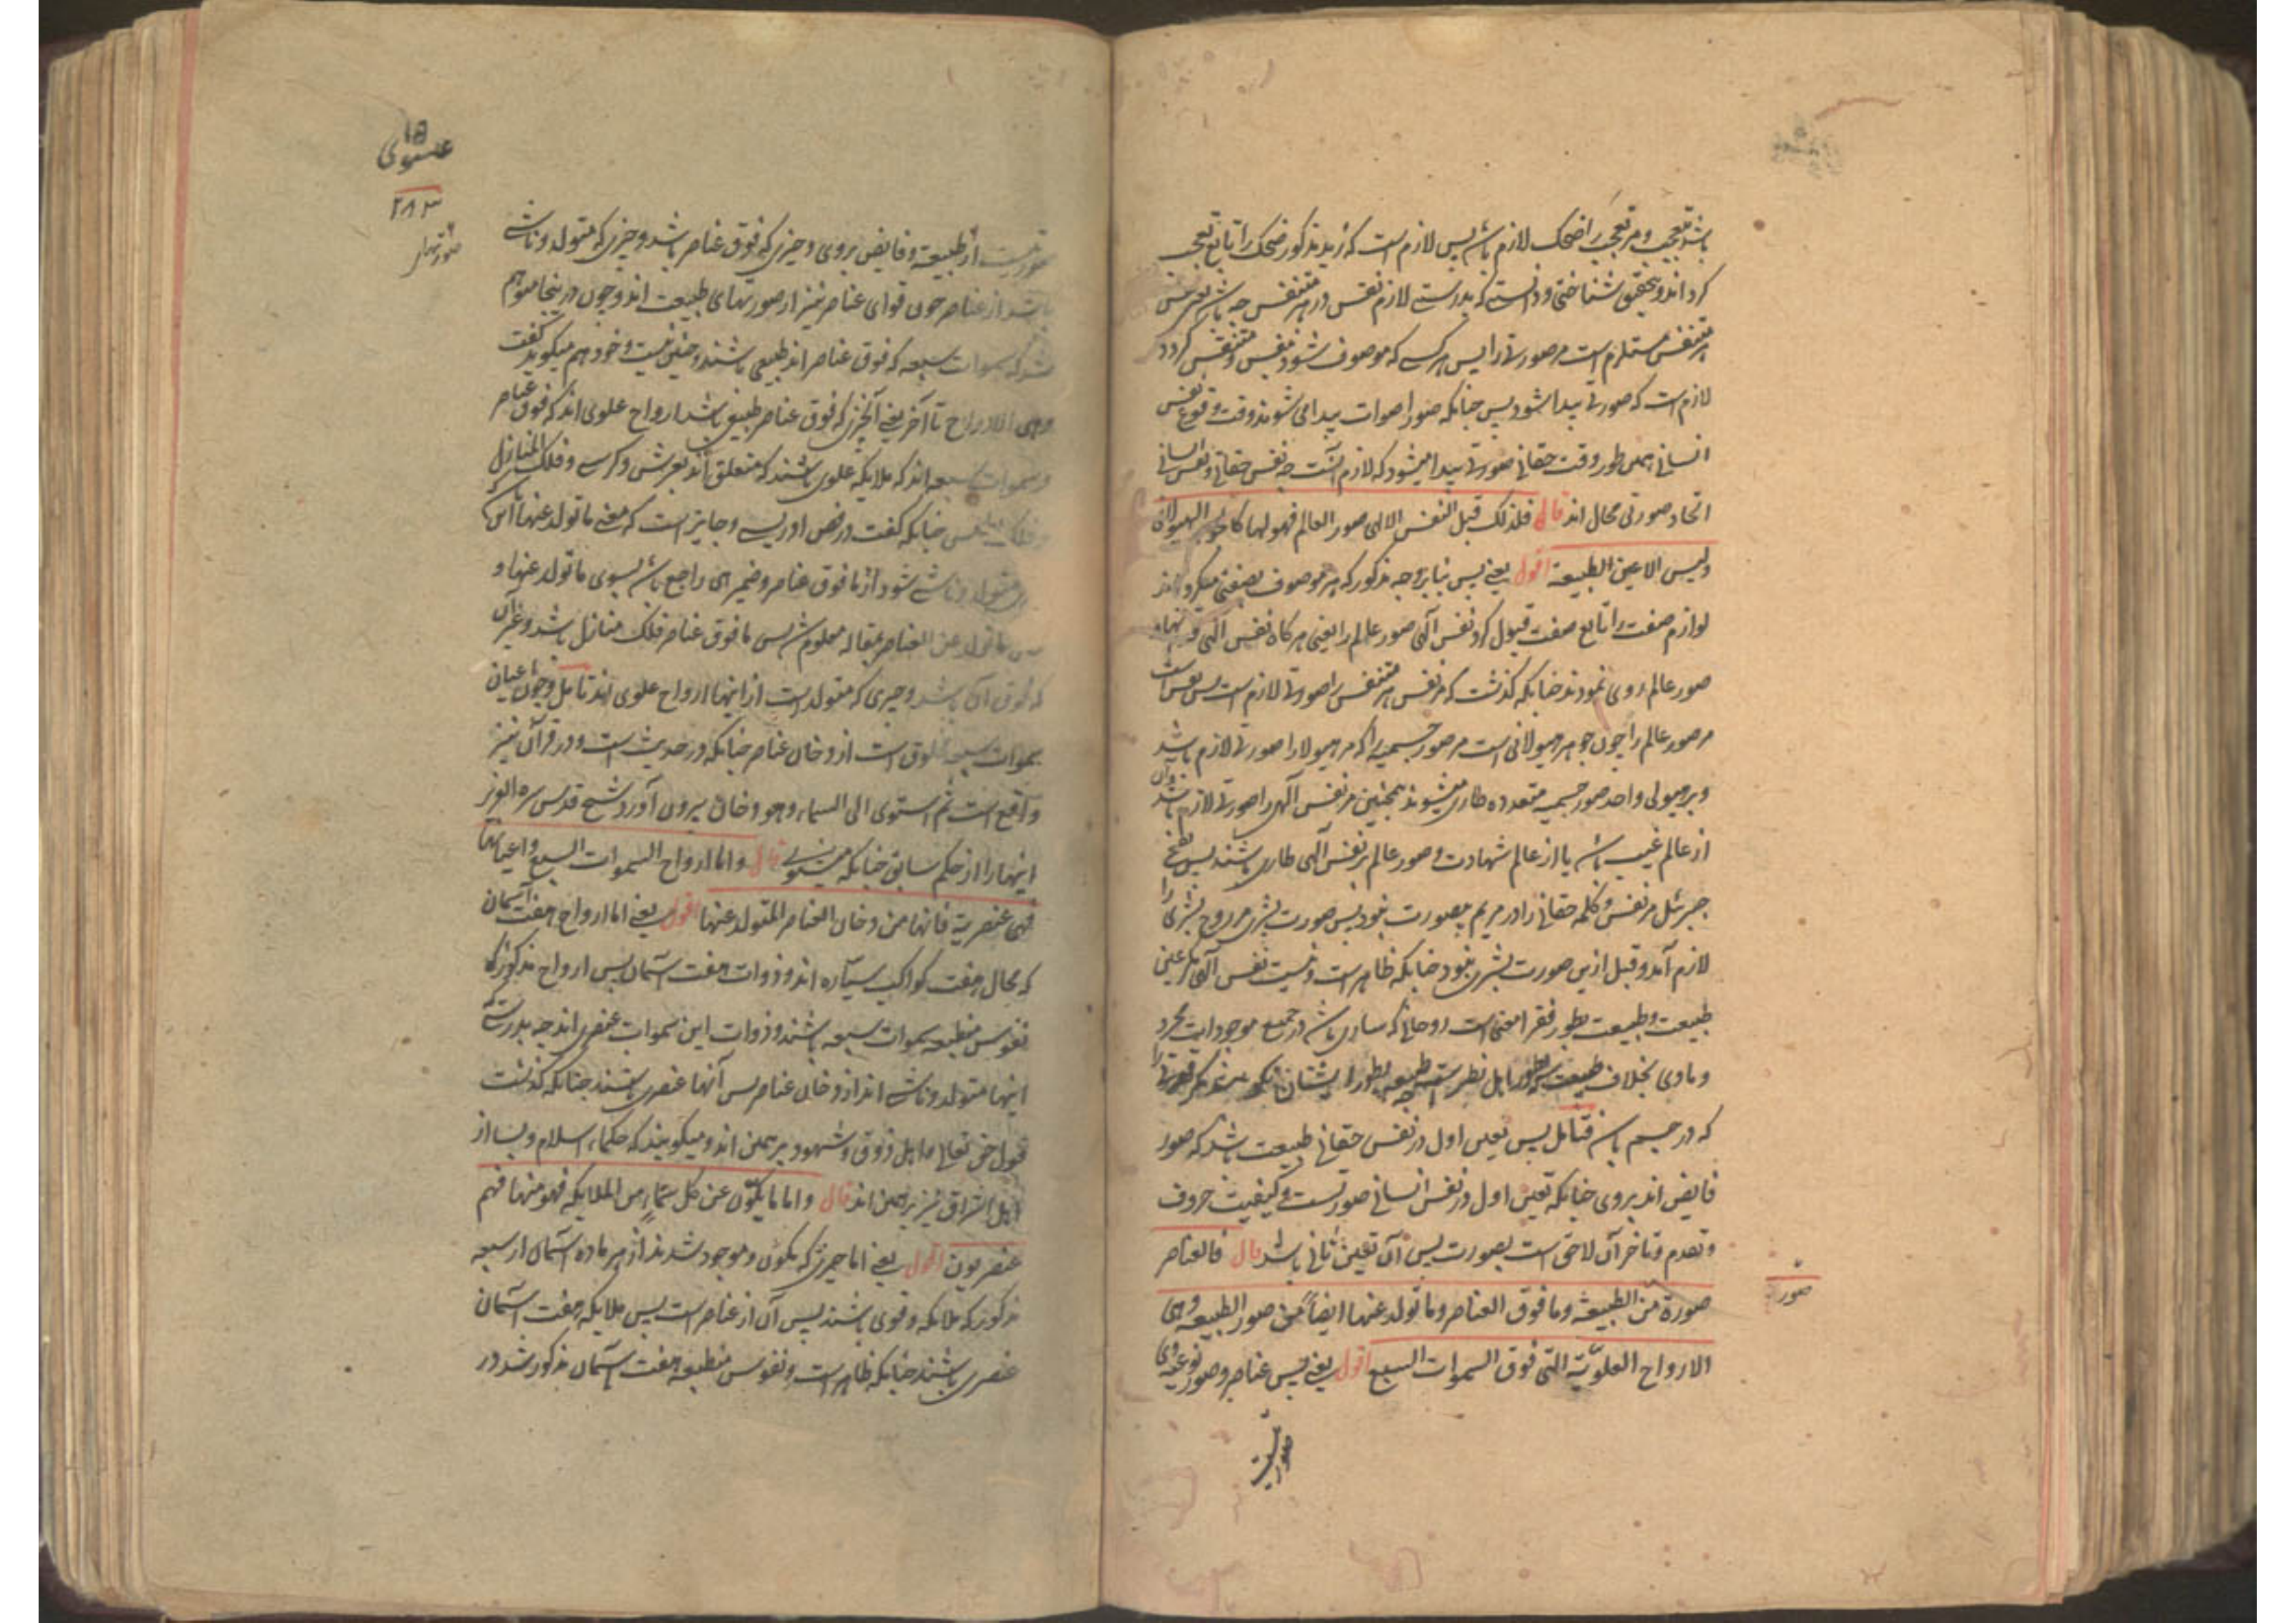 باشد تعجب و مر تعجب را ضحک لازم باشد پس لازم است که زید مذکور ضحک را تابع تعجب
کرداند و بتحقیق شناختی و دانستی که بدرستی لازم نفس در هر متنفس چه باشد
هر متنفس مستلزم است مر صورتی را پس هر کسی که موصوف شود بنفس و متنفس کردد
لازم است که صورتی پیدا شود پس چنانکه صور اصوات پیدا می شوند وقت وقوع نفس
انسانی همین طور وقت حقانی صورتی پیدا میشود که لازم آنست چه نفس حقانی و نفس انسانی
اتحاد صورتی محال اند قال فلذلک قبل النفس الالهی صور العالم فهو لها کالجوهر الهیولانی
ولیس الا عین الطبیعة اقول یعنی پس بنابر وجه مذکور که هر موصوف بصفتی میکرداند
لوازم صفت را تابع صفت قبول کرد نفس آلهی صور عالم را یعنی هر کاه نفس آلهی
صور عالم روی نمودند چنانکه کذشت که مر نفس هر متنفس را صورتی لازم است پس نفس است
مر صور عالم را چون جوهر هیولانی است مر صور جسمیه را که مر هیولا را صورتی لازم باشد
و بر هیولی واحد صور جسمیه متعدده طاری میشوند همچنین مر نفس آلهی را صورتی لازم باشد و آن
از عالم غیب باشد یا از عالم شهادت و صور عالم بر نفس آلهی طاری باشند پس نفخ
جبرئل مر نفس و کلمه حقانی را در مریم بصورت نبود پس صورت بشری مر روح بشری را
لازم آمد و قبل ازین صورت بشری نبود چنانکه ظاهر است و نیست نفس آلهی مکر عین
طبیعت و طبیعت بطور فقرا معنی است روحانی که ساری باشد در جمیع موجودات مجرد
و مادی بخلاف طبیعت بطور اهل نظر طبیعه بطور ایشان مکر قوتی را
که در جسم باشد فتامل پس تعین اول در نفس حقانی طبیعت باشد که صور
فایض اند بروی چنانکه تعین اول در نفس انسانی صورتست و کیفیت حروف
و تقدم و تاخر آن لاحق است بصورت پس آن تعین ثانی باشد قال فالعناصر
صورة من الطبیعة وما فوق العناصر وما تولد عنها ایضا فمن صور الطبیعه وهی
الارواح العلویة التی فوق السموات السبع اقول یعنی پس عناصر و صور نوعیه وی
صور
صورتیست
۱۵
عیسوی
۲۸۳
صورتهای
صورتیست از طبیعة و فایض بروی و چیزی که فوق عناصر باشد و چیزی که متولد و ناشی
باشد از عناصر چون قوای عناصر نیز از صورتهای طبیعت اند و چون درینجا موهم
شد که سموات سبعه که فوق عناصر اند طبیعی باشند و چنین نیست و خود هم میکوید کفت
وهی الارواح تا آخر یعنی آنچیزی که فوق عناصر طبیعی باشد ارواح علوی اند که فوق عناصر
و سموات سبعه اند که ملایکه علوی باشند که متعلق اند بعرش و کرسی و فلک المنازل
و فلک اطلس چنانکه کفت در فص ادریسی و جایز است که معنی ما تولد عنها آن باشد که
متولد و ناشی شود از ما فوق عناصر و ضمیر هی راجع باشد بسوی ما تولد عنها و
ما تولد عن العناصر بمقاله معلوم شد پس ما فوق عناصر فلک منازل باشد و غیر آن
که فوق آن باشد و چیزی که متولد است از اینها ارواح علوی اند تامل و چون اعیان
سموات سبعه مخلوق است از دخان عناصر چنانکه در حدیث است و در قرآن نیز
واقع است ثم استوی الی السماء وهو دخان بیرون آورد شیخ قدس سره العزیز
اینها را از حکم سابق چنانکه میفرماید قال واما ارواح السموات السبع واعیانها
فهی عنصریة فانها من دخان العناصر المتولد عنها اقول یعنی اما ارواح هفت آسمان
که محال هفت کواکب سیاره اند و ذوات هفت آسمان پس ارواح مذکوره که
نفوس منطبعه سموات سبعه باشند و ذوات این سموات عنصری اند چه بدرستی که
اینها متولد و ناشی اند از دخان عناصر پس آنها عنصری باشند چنانکه کذشت
قبول حق تعالی و اهل ذوق و شهود بر همین اند و میکویند که حکماء اسلام و بسا از
اهل اشراق نیز بر همین اند قال واما ما یکون عن کل سماء من الملایکه فهو منها فهم
عنصریون اقول یعنی اما چیزی که یکون و موجود شدند از هر ماده آسمان از سبعه
مذکوره که ملایکه و قوی باشند پس آن از عناصر است پس ملایکه هفت آسمان
عنصری باشند چنانکه ظاهر است و نفوس منطبعه هفت آسمان مذکور شد در